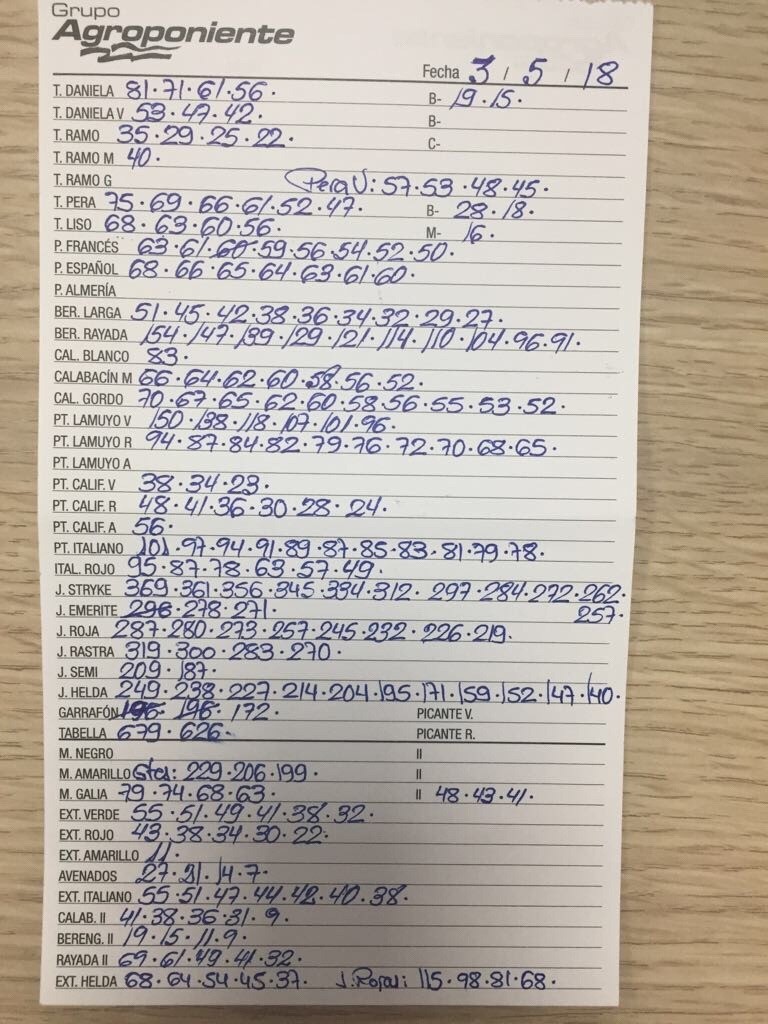 Grupo
Agroponiente
Fecha 3 / 5 / 18
T. DANELA 81.71.61.56. B- 19.15.
T. DANIELA V 53.47.42. B-
T. RAMO 35.29.25.22. C-
T. RAMO M 40.
T. RAMO G Pera V: 57.53.48.45.
T. PERA 75.69.66.61.52.47. B- 28.18.
T. LISO 68.63.60.56. M- 16.
P. FRANCÉS 63.61.60.59.56.54.52.50.
P. ESPAÑOL 68.66.65.64.63.61.60.
P. ALMERÍA
BER. LARGA 51.45.42.38.36.34.32.29.27.
BER. RAYADA 154.147.139.129.121.114.110.104.96.91.
CAL. BLANCO 83.
CALABACÍN M 66.64.62.60.58.56.52.
CAL. GORDO 70.67.65.62.60.58.56.55.53.52.
PT. LAMUYO V 150.138.118.107.101.96.
PT. LAMUYO R 94.87.84.82.79.76.72.70.68.65.
PT. LAMUYO A
PT. CALIF. V 38.34.23.
PT. CALIF. R 48.41.36.30.28.24.
PT. CALIF. A 56.
PT. ITALIANO 101.97.94.91.89.87.85.83.81.79.78.
ITAL. ROJO 95.87.78.63.57.49.
J. STRYKE 369.361.356.345.334.312. 297.284.272.262.
J. EMERITE 296.278.271. 257.
J. ROJA 287.280.273.257.245.232.226.219.
J. RASTRA 319.300.283.270.
J. SEMI 209.187.
J. HELDA 249.238.227.214.204.195.171.159.152.147.140.
GARRAFÓN 196. 172. PICANTE V.
TABELLA 679.626. PICANTE R.
M. NEGRO II
M. AMARILLO Stos: 229.206.199. II
M. GALIA 79.74.68.63. II 48.43.41.
EXT. VERDE 55.51.49.41.38.32.
EXT. ROJO 43.38.34.30.22.
EXT. AMARILLO 11.
AVENADOS 27.21.14.7.
EXT. ITALIANO 55.51.47.44.42.40.38.
CALAB. II 41.38.36.31.9.
BERENG. II 19.15.11.9.
RAYADA II 69.61.49.41.32.
EXT. HELDA 68.64.54.45.37. J. Rojas: 115.98.81.68.